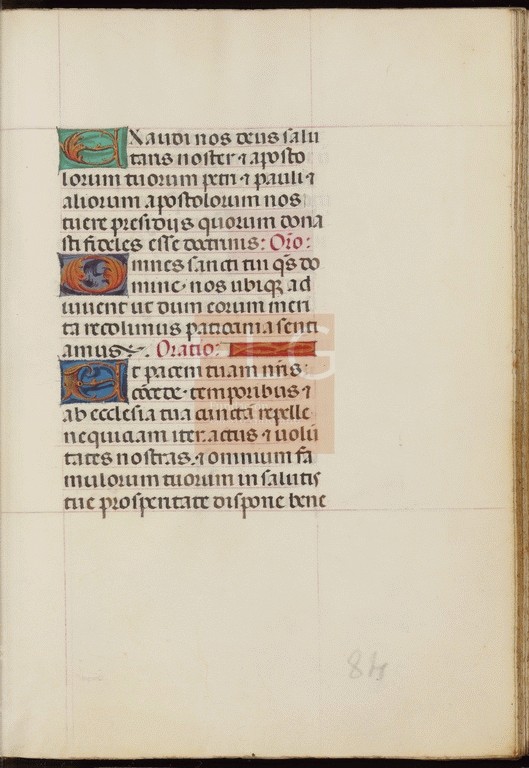 Exaudi nos deus salu
taris noster ⁊ aposto
lorum tuorum petri ⁊ pauli ⁊
aliorum apostolorum nos
tuere presidijs quorum dona
sti fideles esse doctrinis: Orō:
Omnes sancti tui q̄s do
mine nos ubiqꝫ ad
iuuent ut dum eorum meri
ta recolimus patrocinia senti
amus. Oratio:
Et pacem tuam nr̄is:
cōcede temporibus ⁊
ab ecclesia tua cunctā repelle
nequiciam iter, actus ⁊ uolū
tates nostras, ⁊ omnium fa
mulorum tuorum in salutis
tue prosperitate dispone bene
48